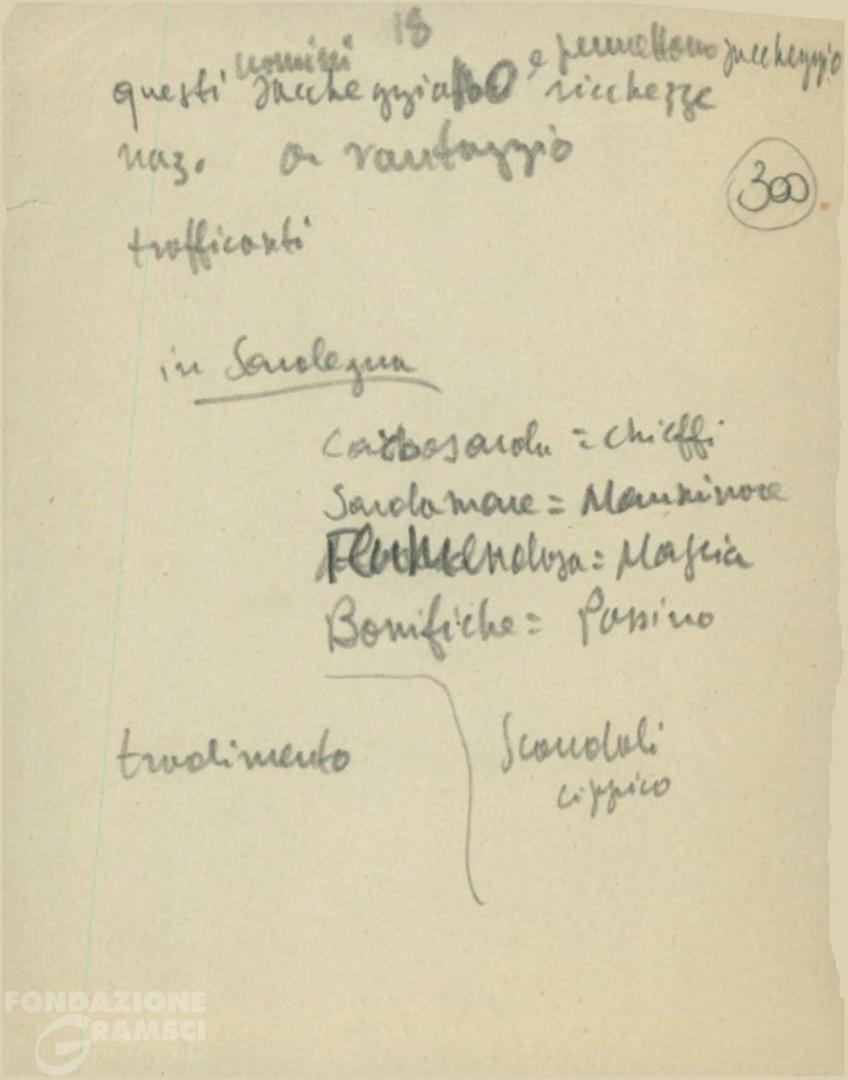 18
uomini e permettono saccheggio
questi saccheggiano ricchezze
naz. a vantaggio
300
trafficanti
in Sardegna
Carbosarda = Chieffi
Sardamare = Mannironi
Flumendosa = Maxia
Bonifiche = Passino
tradimento
Scandali
Cippico
FONDAZIONE
GRAMSCI
onlus